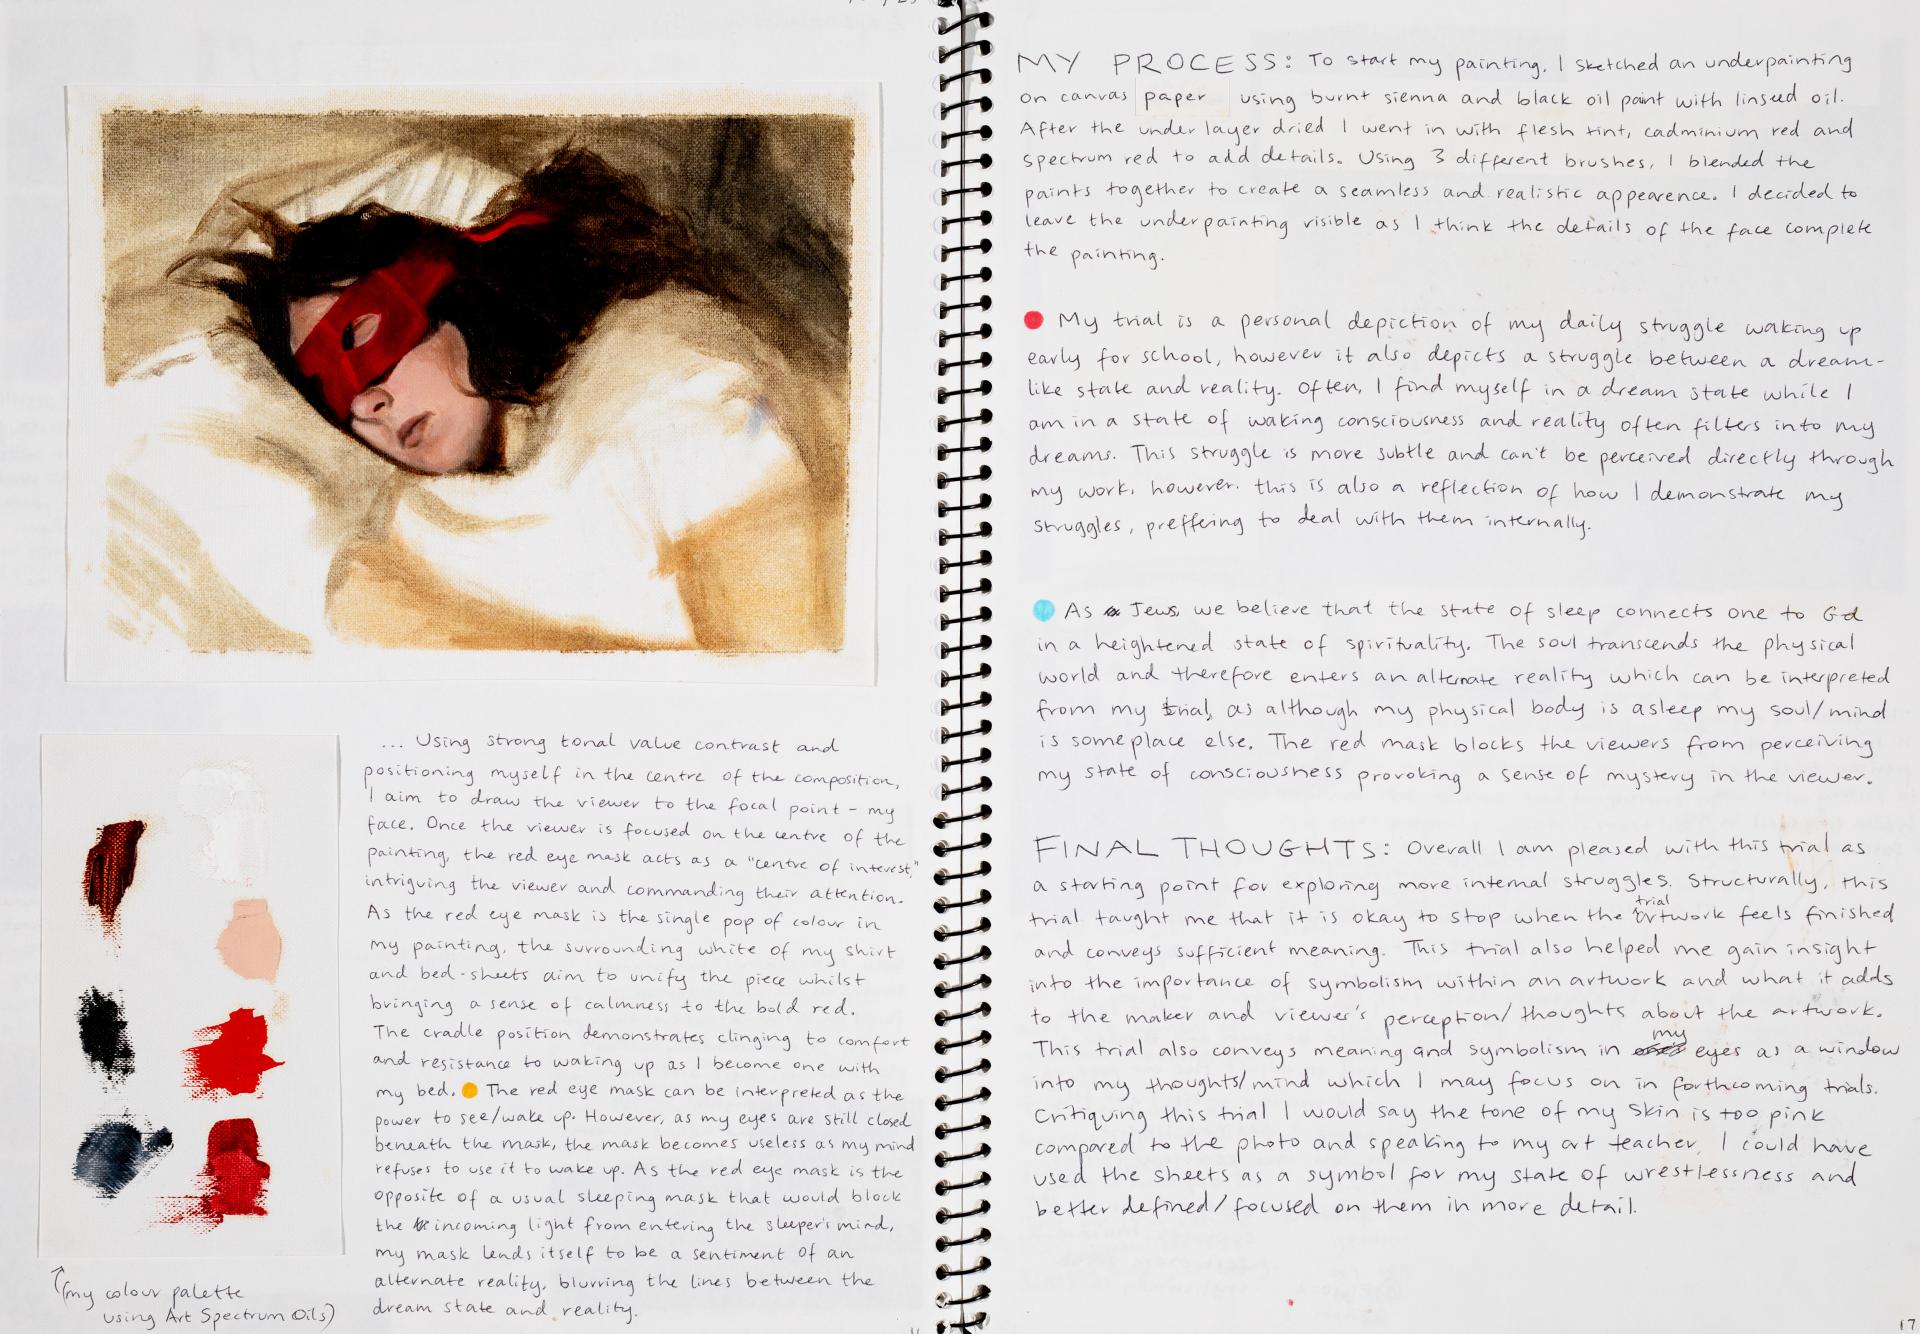 ... Using strong tonal value contrast and
positioning myself in the centre of the composition,
I aim to draw the viewer to the focal point - my
face. Once the viewer is focused on the centre of the
painting, the red eye mask acts as a "centre of interest,"
intriguing the viewer and commanding their attention.
As the red eye mask is the single pop of colour in
my painting, the surrounding white of my shirt
and bed-sheets aim to unify the piece whilst
bringing a sense of calmness to the bold red.
The cradle position demonstrates clinging to comfort
and resistance to waking up as I become one with
my bed. The red eye mask can be interpreted as the
power to see/wake up. However, as my eyes are still closed
beneath the mask, the mask becomes useless as my mind
refuses to use it to wake up. As the red eye mask is the
opposite of a usual sleeping mask that would block
the incoming light from entering the sleeper's mind,
my mask lends itself to be a sentiment of an
alternate reality, blurring the lines between the
dream state and reality.
(my colour palette
using Art Spectrum Oils)
MY PROCESS: To start my painting, I sketched an underpainting
on canvas paper using burnt sienna and black oil paint with linseed oil.
After the under layer dried I went in with flesh tint, cadminium red and
spectrum red to add details. Using 3 different brushes, I blended the
paints together to create a seamless and realistic appearence. I decided to
leave the underpainting visible as I think the details of the face complete
the painting.
My trial is a personal depiction of my daily struggle waking up
early for school, however it also depicts a struggle between a dream-
like state and reality. Often, I find myself in a dream state while I
am in a state of waking consciousness and reality often filters into my
dreams. This struggle is more subtle and can't be perceived directly through
my work, however. this is also a reflection of how I demonstrate my
struggles, preffering to deal with them internally.
As Jews, we believe that the state of sleep connects one to G-d
in a heightened state of spirituality. The soul transcends the physical
world and therefore enters an alternate reality which can be interpreted
from my trial, as although my physical body is asleep my soul/mind
is someplace else. The red mask blocks the viewers from perceiving
my state of consciousness provoking a sense of mystery in the viewer.
FINAL THOUGHTS: Overall I am pleased with this trial as
a starting point for exploring more internal struggles. Structurally, this
trial taught me that it is okay to stop when the trial artwork feels finished
and conveys sufficient meaning. This trial also helped me gain insight
into the importance of symbolism within an artwork and what it adds
to the maker and viewer's perception/thoughts about the artwork.
This trial also conveys meaning and symbolism in my eyes as a window
into my thoughts/mind which I may focus on in forthcoming trials.
Critiquing this trial I would say the tone of my skin is too pink
compared to the photo and speaking to my art teacher, I could have
used the sheets as a symbol for my state of wrestlessness and
better defined/focused on them in more detail.
17